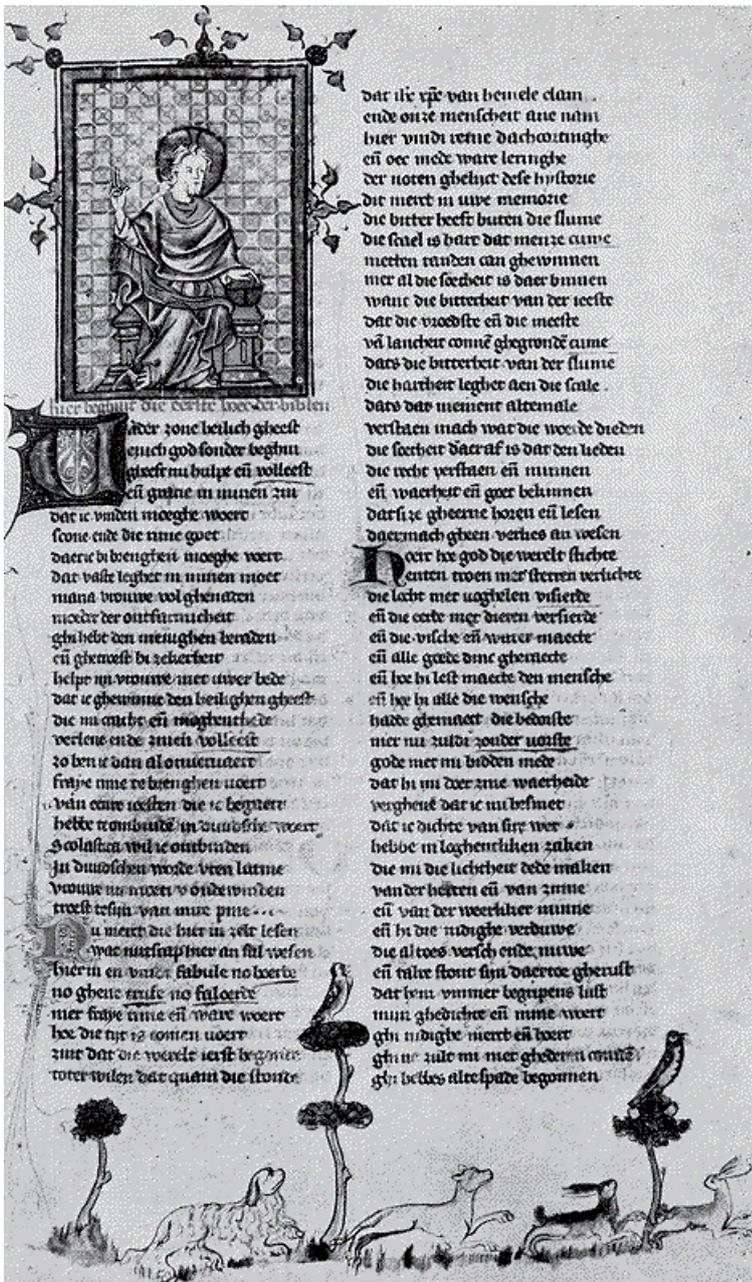 hier beghint die eerste boec der biblen
Vader zone heilich gheest
enich god sonder beghin
gheeft mi hulpe eñ volleest
eñ gracie in minen zin
dat ic vinden moeghe woert
scone ende die rime goet
daer ic bi brenghen moeghe voert
dat vaste leghet in minen moet
maria vrouwe vol ghenaden
moeder der ontfarmicheit
ghi hebt den menighen beraden
eñ ghetroest bi zekerheit
helpt mi vrouwe met uwer bede
dat ic ghewinne den heilighen gheest
die mi cracht eñ moghenthede
verlene ende zinen volleest
zo ben ic dan al onvervaert
fraye rime te brenghen voert
van eenre ieesten die ic begaert
hebbe te ombinden in duudsche woert
Scolastica wil ic ontbinden
In duudschen worde uten latine
vrouwe nu moeti v ondewinden
troest te sijn van mire pine
Nu merct die hier in zelt lesen
wat nutscap hier an sal wesen
hier in en vindi fabule no boerde
no ghene trufe no faloerde
mer fraye rime eñ ware woert
hoe die tijt is comen voert
zint dat die werelt ierst began
toter wilen dat quam die stonde
dat ihc xpc van hemele clam
ende onze menscheit ane nam
hier vindi vraie dachcortinghe
eñ oec mede ware leringhe
der noten ghelijct dese hystorie
dit merct in uwe memorie
die bitter heeft buten die slume
die scael is hart dat menze cume
metten tanden can ghewinnen
mer al die soetheit is daer binnen
want die bitterheit van der ieeste
dat die vroedste eñ die meeste
vā lancheit connē ghegrondē cume
dats die bitterheit van der slume
die hartheit leghet aen die scale
dats dat mement altemale
verstaen mach wat die woerde dieden
die soetheit daeraf is dat den lieden
die recht verstaen eñ minnen
eñ waerheit eñ goet bekinnen
dat size gheerne horen eñ lesen
daer mach gheen verlies an wesen
Hoert hoe god die werelt stichte
enten troen met sterren verlichte
die locht met voghelen visierde
eñ die eerde met dieren versierde
eñ die vische eñ water maecte
eñ alle goede dinc gheraecte
eñ hoe hi lest maecte den mensche
eñ hoe hi alle die wensche
hadde ghemaect die bedorste
mer nu zuldi zonder vorste
gode met mi bidden mede
dat hi mi doer zine waerhede
vergheve dat ic mi besmet
dat ic dichte van sire wet
hebbe in loghentliken zaken
die mi die lichtheit dede maken
van der herten eñ van zinne
eñ van der weerliker minne
eñ hi die nidighe verduwe
die altoes versch ende nuwe
eñ talre stont sijn daertoe gherust
dat hem ummer begripens lust
mijn ghedichte eñ mine woert
ghi nidighe merct eñ hoert
ghi ne zult mi niet ghederen connen
ghi hebbes alte spade begonnen